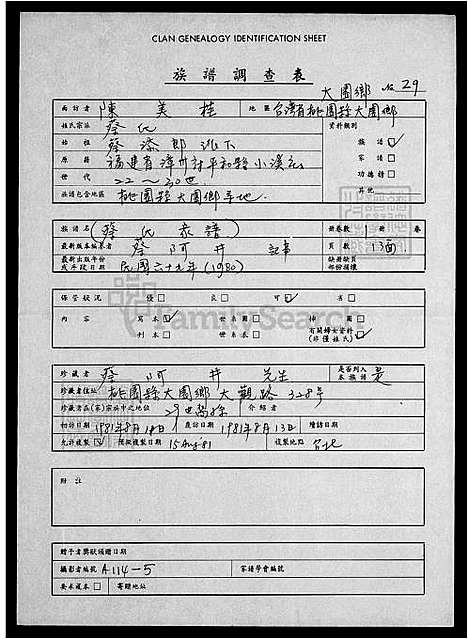 CLAN GENEALOGY IDENTIFICATION SHEET
族譜調查表
大園鄉 No 29
面訪者 陳美桂 地區 台灣省桃園縣大園鄉
姓氏宗派 蔡氏 資料類別
始祖 蔡添郎派下 族譜 ☑
原籍 福建省漳州府平和縣小溪 家譜 □
世代 22～30世 功德譜 □
族譜包含地區 桃園縣大園鄉等地. 其他
族譜名 (蔡氏恭譜) 冊卷數 1 冊 卷
最新版本編纂者 蔡阿井 記事 頁數 13面.
最新出版年份或手段日期 民國六十九年(1980) 缺冊缺頁部份損壞
保管狀況 優 □ 良 □ 可 ☑ 劣 □
內容 寫本 ☑ 世系圖 □ 神圖 □
刊本 □ 世系表 □ 有關婦女資料(非僅姓氏) ☑
珍藏者 蔡阿井 先生 是否列入本族譜 是
珍藏者住址 桃園縣大園鄉大觀路328号
珍藏者在(家)宗族中之地位 29世裔孫 介紹者
初訪日期 1981年8月12日 底訪日期 1981年8月13日 續訪日期
允許複製 ☑ 預擬複製日期 15 Aug 81 複製地點 台北
附註
贈予者獎狀頒贈日期
攝影者編號 A114-5 家譜學會編號
要求複本 □ 寄贈地址
FamilySearch